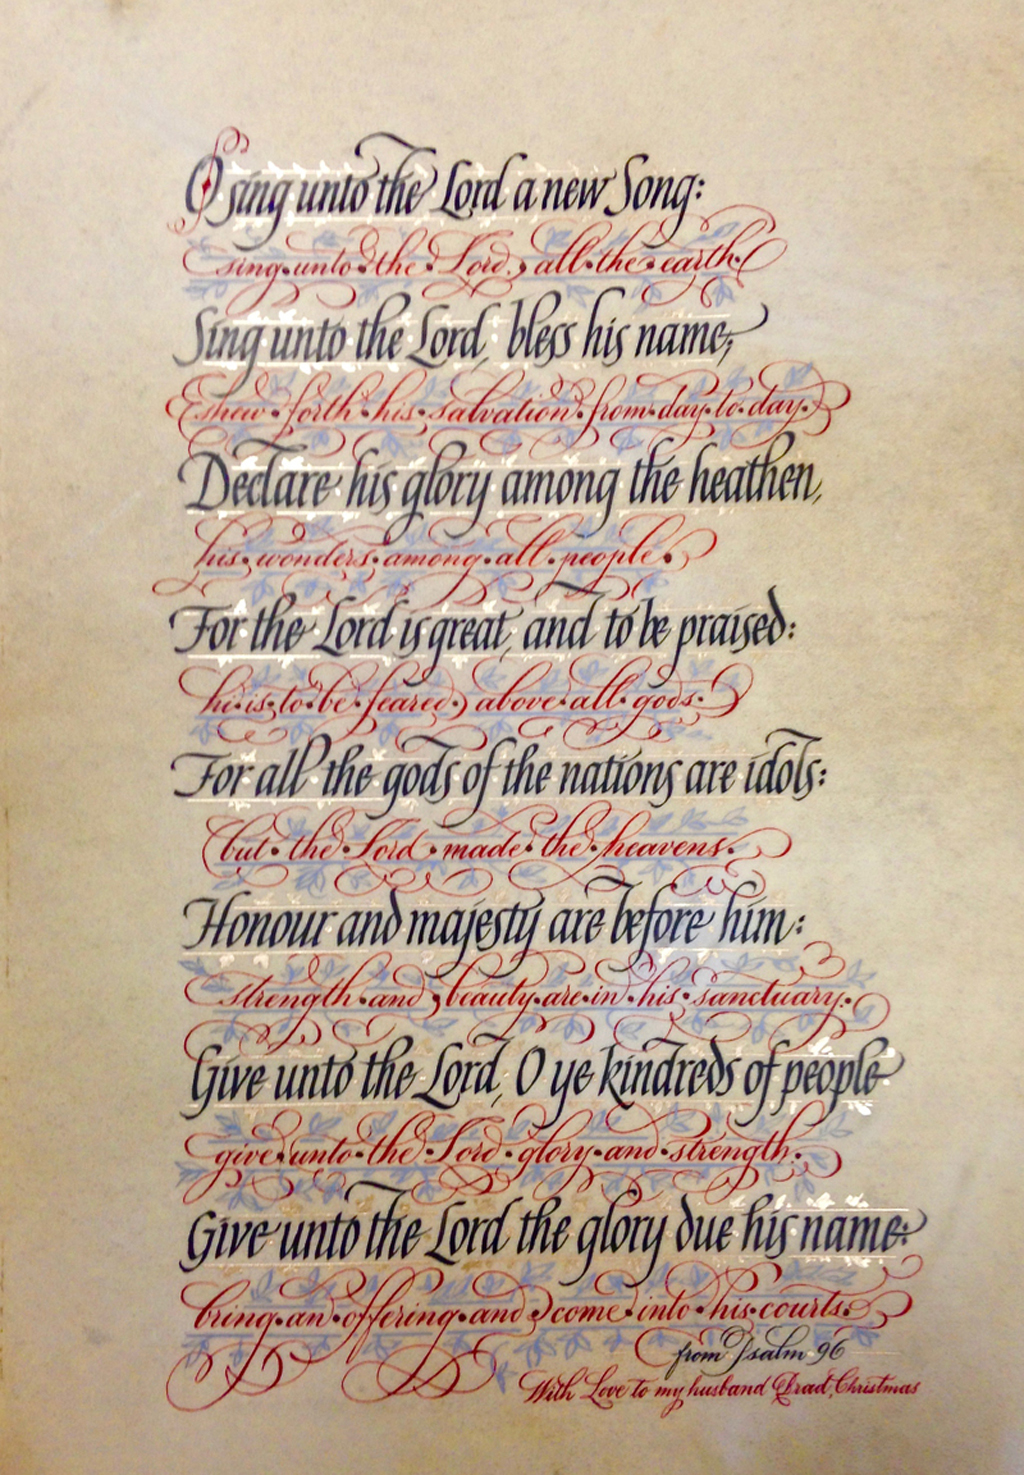 O sing unto the Lord a new Song:
sing·unto·the·Lord, all·the·earth.
Sing unto the Lord, bless his name;
shew·forth·his·salvation·from·day·to·day.
Declare his glory among the heathen,
his·wonders·among·all·people.
For the Lord is great, and to be praised:
he·is·to·be·feared, above·all·gods.
For all the gods of the nations are idols:
but·the·Lord·made·the·heavens.
Honour and majesty are before him:
strength·and·beauty·are·in·his·sanctuary.
Give unto the Lord, O ye kindreds of people
give·unto·the·Lord·glory·and·strength.
Give unto the Lord the glory due his name:
bring·an·offering·and·come·into·his·courts.
from Psalm 96
With Love to my husband Christmas